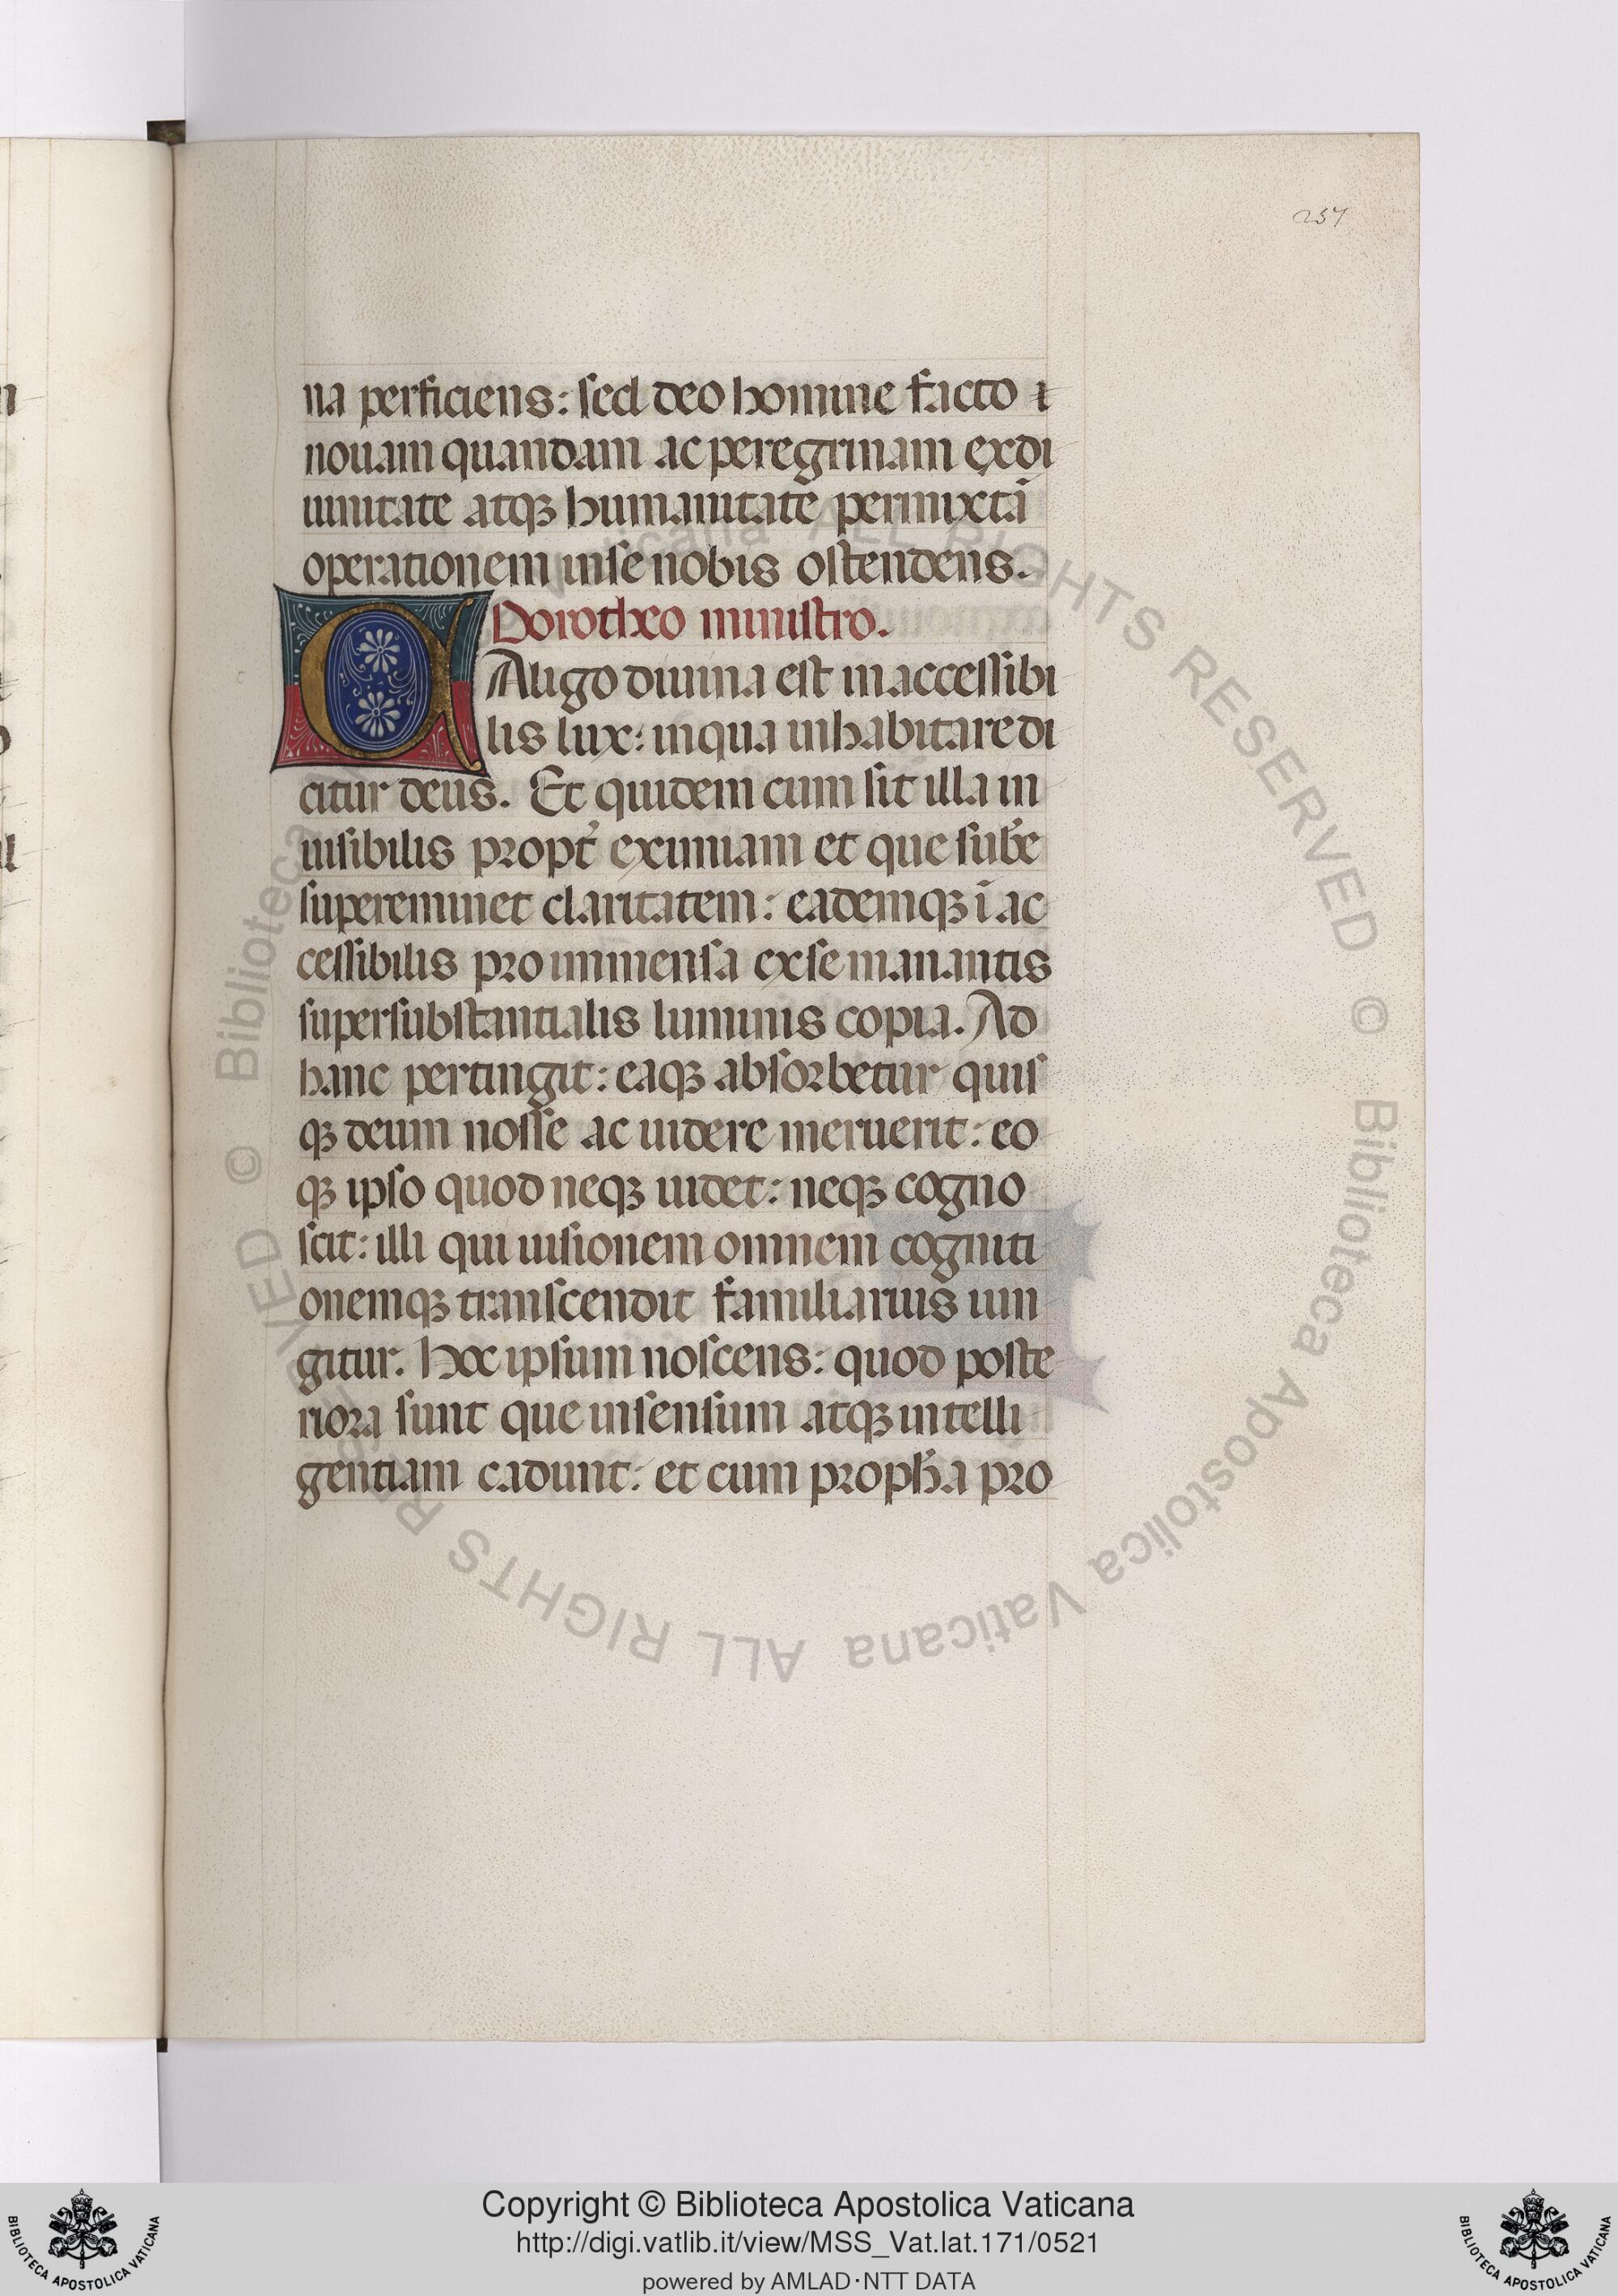 257
na perficiens: sed deo homine facto i
nouam quandam ac peregrinam ex di
uinitate atqꝫ humanitate permixtā
operationem in se nobis ostendens.
Dorotheo ministro.
CAligo diuina est inaccessibi
lis lux: in qua inhabitare di
citur deus. Et quidem cum sit illa in
uisibilis propt̉ eximiam et que sub̄e
supereminet claritatem: eademqꝫ ī ac
cessibilis pro immensa ex se manantis
supersubstantialis luminis copia. Ad
hanc pertingit: eaqꝫ absorbetur quis
qꝫ deum nosse ac uidere meruerit: eo
qꝫ ipso quod neqꝫ uidet: neqꝫ cogno
scit: illi qui uisionem omnem cogniti
onemqꝫ transcendit familiarius iun
gitur. Hoc ipsum noscens: quod poste
riora sunt que in sensum atqꝫ intelli
gentiam cadunt: et cum proph̄a pro
© Biblioteca Apostolica Vaticana ALL RIGHTS RESERVED
Copyright © Biblioteca Apostolica Vaticana
http://digi.vatlib.it/view/MSS_Vat.lat.171/0521
powered by AMLAD·NTT DATA
BIBLIOTECA APOSTOLICA VATICANA
BIBLIOTECA APOSTOLICA VATICANA